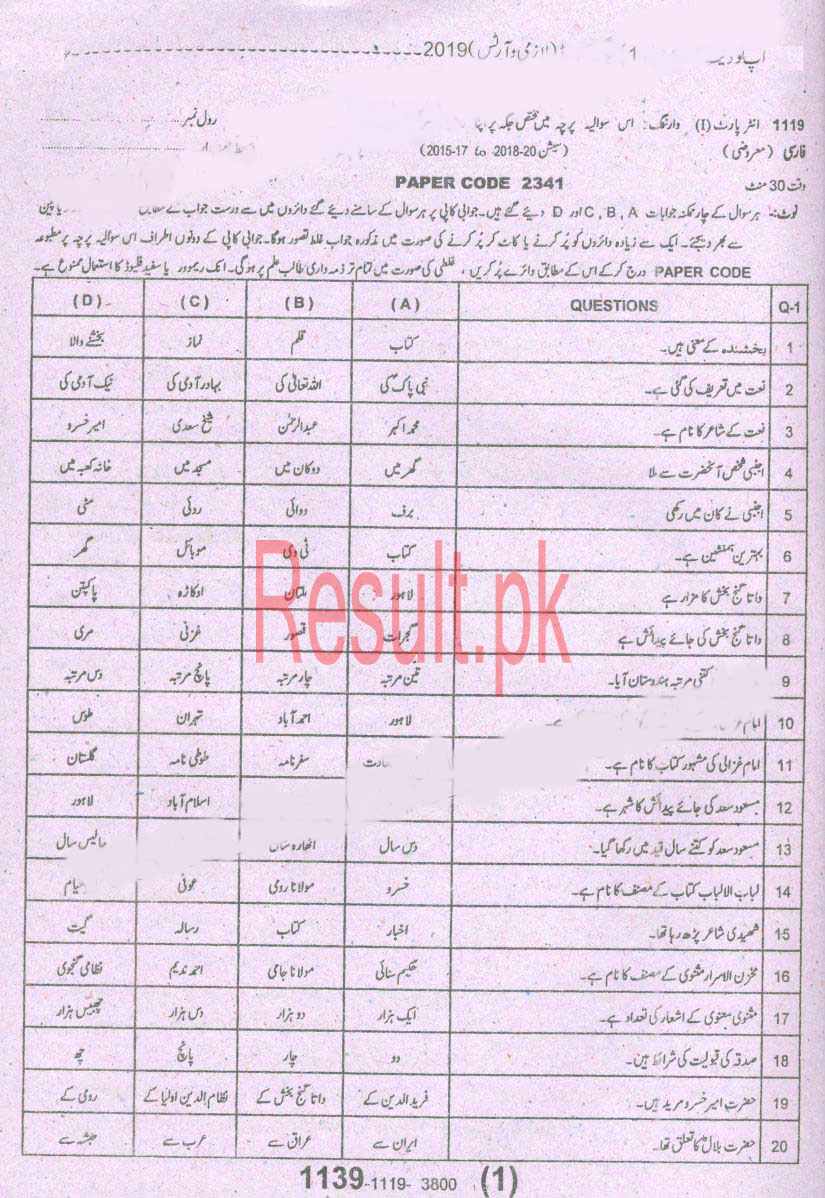 اپ لوڈیـ 1 (لازمی و آرٹس) 2019
1119 انٹر پارٹ (I) وارننگ: اس سوالیہ پرچہ میں مختص جگہ پر رول نمبر
فارسی (معروضی) (سیشن 20-2018 to 17-2015)
وقت 30 منٹ PAPER CODE 2341
نوٹ:- ہر سوال کے چار ممکنہ جوابات A , B , C اور D دیئے گئے ہیں۔ جوابی کاپی پر ہر سوال کے سامنے دیئے گئے دائروں میں سے درست جواب کے مطابق یا پین
سے بھر دیجئے۔ ایک سے زیادہ دائروں کو پُر کرنے یا کاٹ کر پُر کرنے کی صورت میں مذکورہ جواب غلط تصور ہوگا۔ جوابی کاپی کے دونوں اطراف اس سوالیہ پرچہ پر مطبوعہ
PAPER CODE درج کرکے اس کے مطابق دائرے پُر کریں، غلطی کی صورت میں تمام تر ذمہ داری طالب علم پر ہوگی۔ انک ریموور یا سفید فلیوڈ کا استعمال ممنوع ہے۔
Q-1 QUESTIONS (A) (B) (C) (D)
1 بخشندہ کے معنی ہیں۔ کتاب قلم نماز بخشنے والا
2 نعت میں تعریف کی گئی ہے۔ نبی پاک کی اللہ تعالٰی کی بہادر آدمی کی نیک آدمی کی
3 نعت کے شاعر کا نام ہے۔ محمد اکبر عبدالرحمٰن شیخ سعدی امیر خسرو
4 اجنبی شخص آنحضرت سے ملا گھر میں دوکان میں مسجد میں خانہ کعبہ میں
5 اجنبی نے کان میں رکھی برف دوائی روئی مٹی
6 بہترین ہمنشین ہے۔ کتاب ٹی وی موبائل گھر
7 داتا گنج بخش کا مزار ہے لاہور ملتان اوکاڑہ پاکپتن
8 داتا گنج بخش کی جائے پیدائش ہے گجرات قصور غزنی مری
9 کتنی مرتبہ ہندوستان آیا۔ تین مرتبہ چار مرتبہ پانچ مرتبہ دس مرتبہ
10 امام لاہور احمد آباد تہران طوس
11 امام غزالی کی مشہور کتاب کا نام ہے۔ سفرنامہ طوطی نامہ گلستان
12 مسعود سعد کی جائے پیدائش کا شہر ہے۔ اسلام آباد لاہور
13 مسعود سعد کو کتنے سال قید میں رکھا گیا۔ دس سال اٹھارہ سال چالیس سال
14 لباب الالباب کتاب کے مصنف کا نام ہے۔ خسرو مولانا رومی عوفی خیام
15 شھیدی شاعر پڑھ رہا تھا۔ اخبار کتاب رسالہ گیت
16 مخزن الاسرار مثنوی کے مصنف کا نام ہے۔ حکیم سنائی مولانا جامی احمد ندیم نظامی گنجوی
17 مثنوی معنوی کے اشعار کی تعداد ہے۔ ایک ہزار دو ہزار دس ہزار چھبیس ہزار
18 صدقہ کی قبولیت کی شرائط ہیں۔ دو چار پانچ چھ
19 حضرت امیر خسرو مرید ہیں۔ فرید الدین کے داتا گنج بخش کے نظام الدین اولیا کے رومی کے
20 حضرت بلال کا تعلق تھا۔ ایران سے عراق سے عرب سے حبشہ سے
1139-1119- 3800 (1)
Result.pk